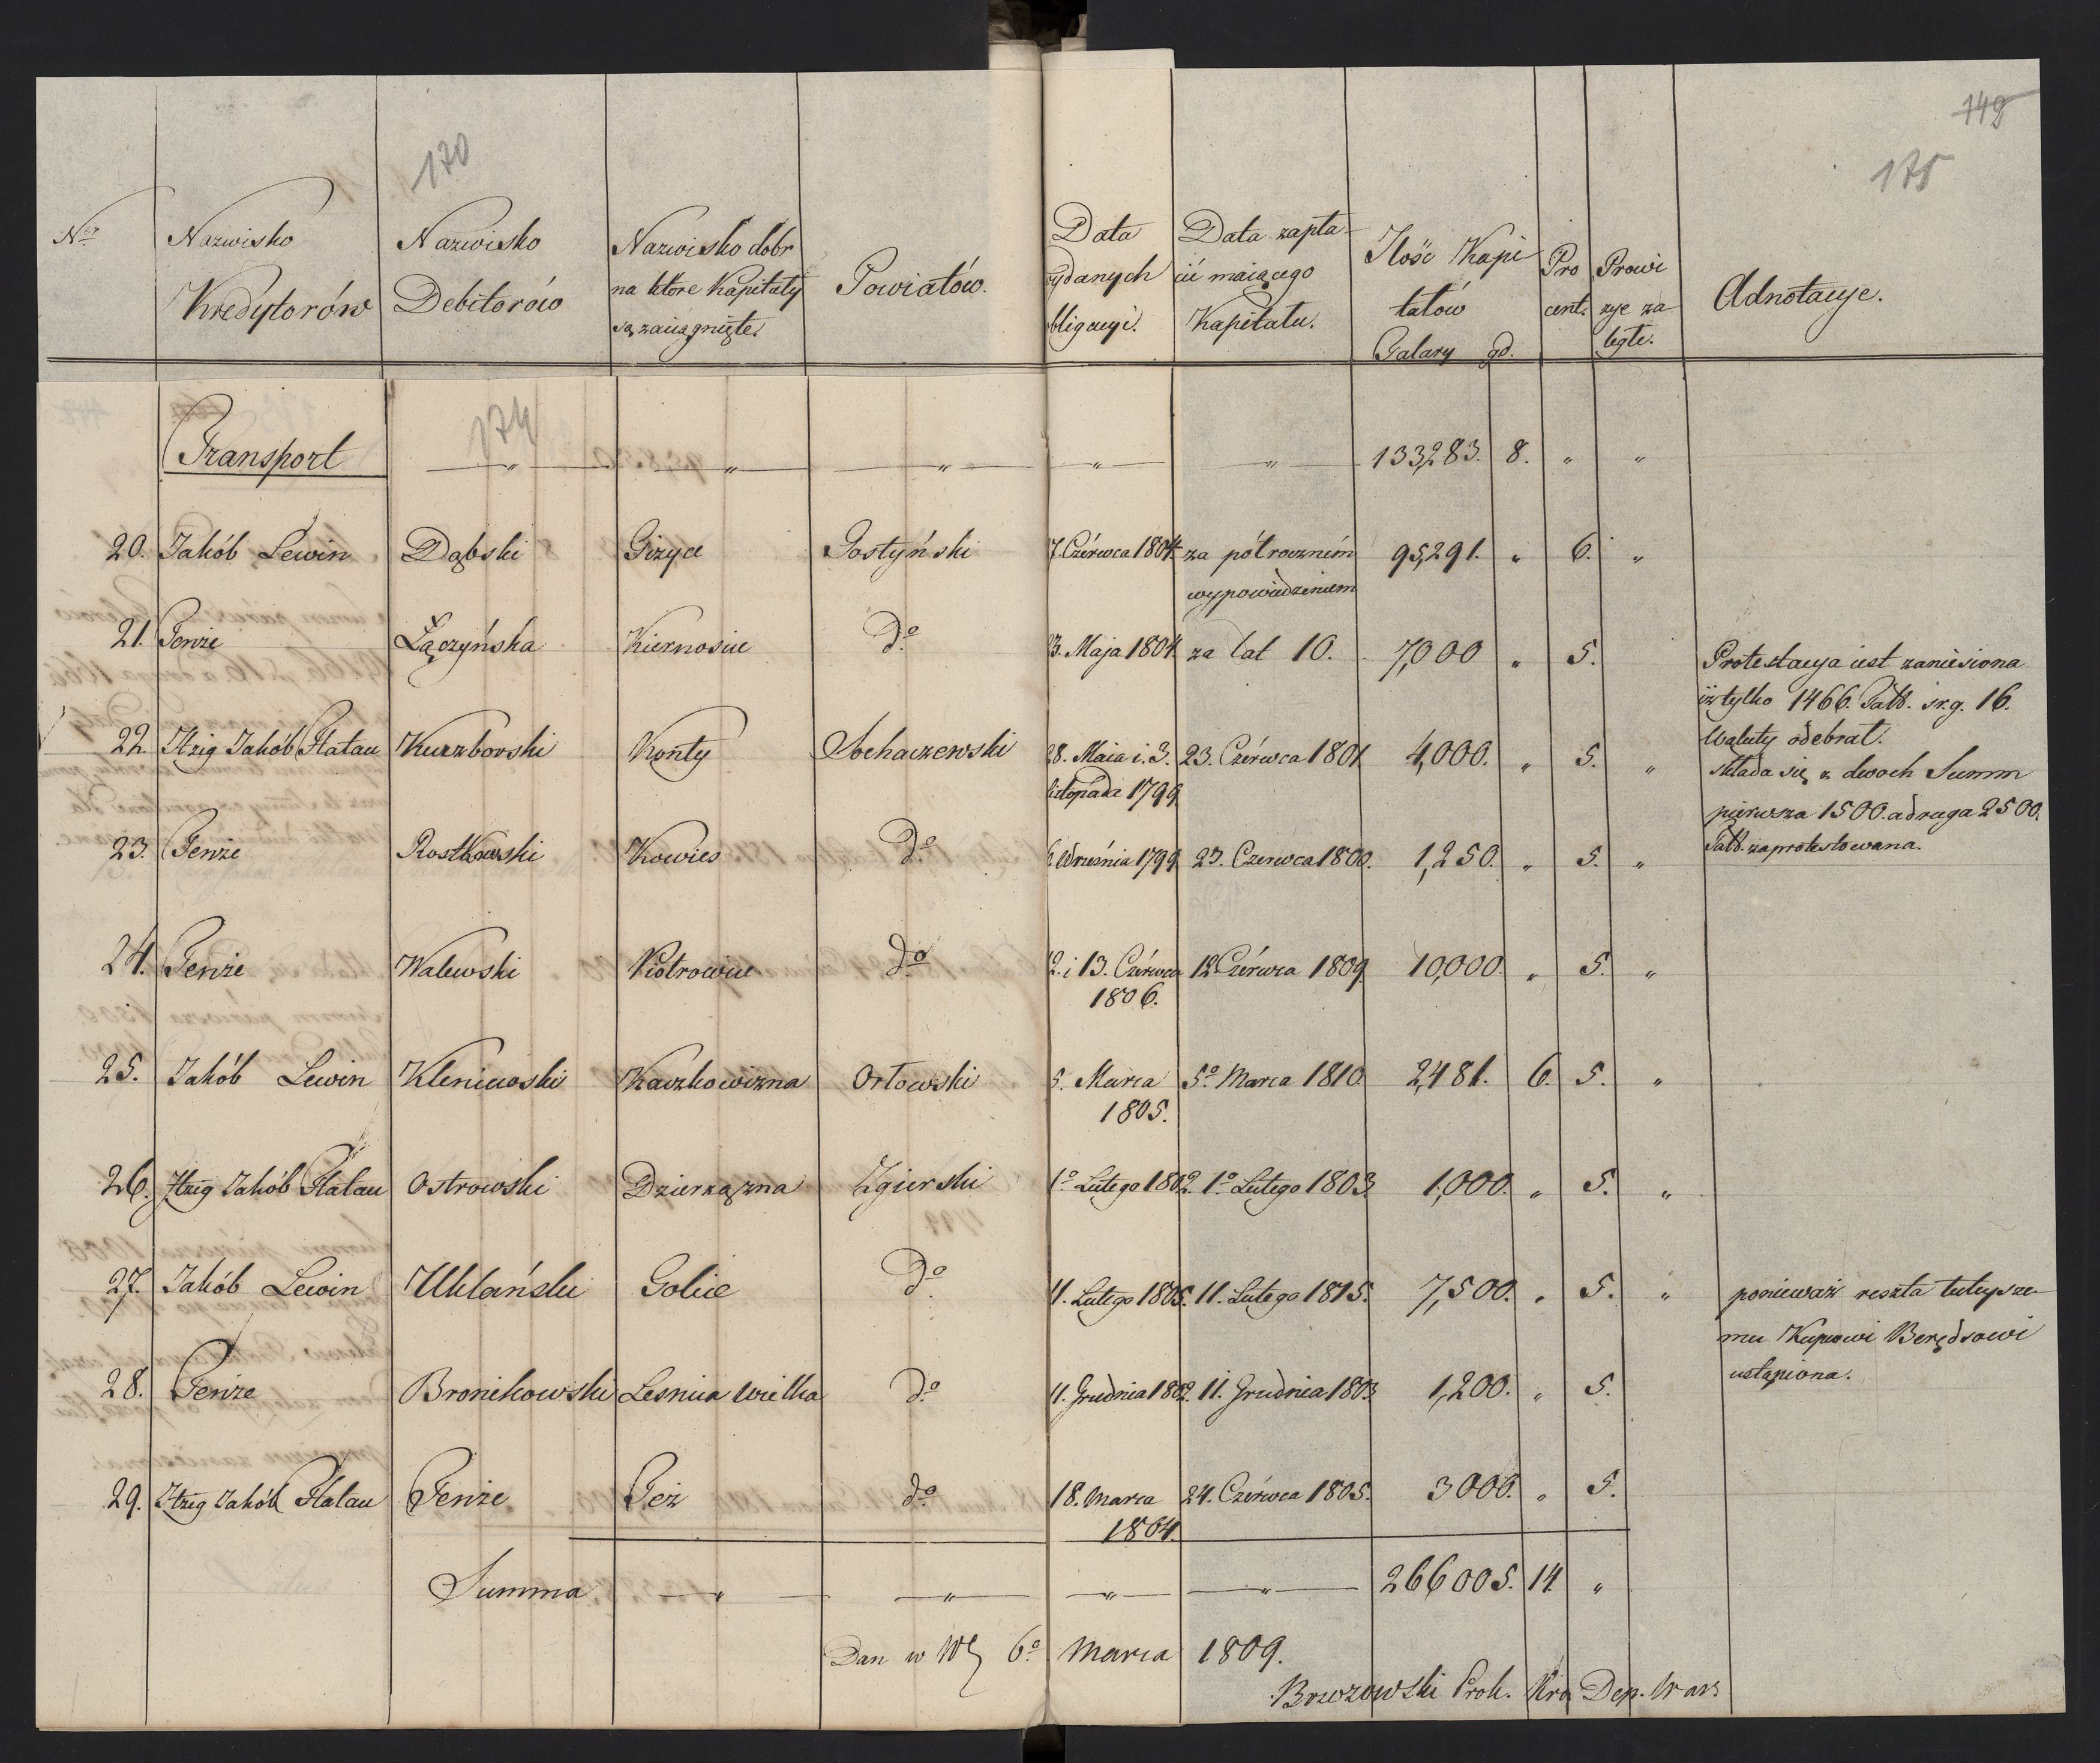 142
170
175
Nro Nazwisko Kredytorów Nazwisko Debitorów Nazwisko dobr na ktore Kapitały są zaciągnięte. Powiatów. Data wydanych obligacyi. Data zapłacić maiącego Kapitału. Ilość Kapitałów Talary gd. Procent. Prowizye zaległe. Adnotacye.
174
Transport — " — " — " — " — " — 133,283. 8. " "
20. Jakób Lewin Dąbski Giżyce Gostyński 7. Czérwca 1804. za półroczném 95,291. " 6. "
wypowiedzeniem
21. Tenże Łączyńska Kiernosice do 23. Maja 1804. za lat 10. 7,000 " 5. Protestacya iest zaniesiona
iż tylko 1466. Tal. śr.g. 16.
Waluty odebrał.
22. Itzig Jakób Flatau Kuczborski Konty Sochaczewski 28. Maia i. 3. 23. Czérwca 1801 4,000. " 5. " składa się z dwoch Summ
Listopada 1799 pierwsza 1500. a druga 2500.
23. Tenże Rostkowski Kowies do 6 Września 1799 23. Czerwca 1800. 1,250. " 5. " Tal. zaprotestowana.
24. Tenże Walewski Piotrowice do 12. i 13. Czérwca 12 Czérwca 1809. 10,000. " 5. "
1806.
25. Jakób Lewin Kleniewski Kaczkowizna Orłowski 5. Marca 5o Marca 1810. 2,481. 6. 5. "
1805.
26. Itzig Jakób Flatau Ostrowski Dzierzązna Zgierski 1o Lutego 1802. 1o Lutego 1803. 1,000. " 5. "
27. Jakób Lewin Uklański Golice do 11. Lutego 1805. 11. Lutego 1815. 7,500. " 5. " ponieważ reszta tuteysze-
mu Kupcowi Berędsowi
ustąpiona.
28. Tenże Bronikowski Lesnica wielka do 11. Grudnia 1802. 11. Grudnia 1803 1,200. " 5.
29. Itzig Jakób Flatau Tenże Też do 18. Marca 24. Czérwca 1805. 3000. " 5.
1804.
Summa — " — " — " — " — 266005. 14. "
Dan w 6o Marca 1809.
Brzozowski Prok. Kro. Dep. War.